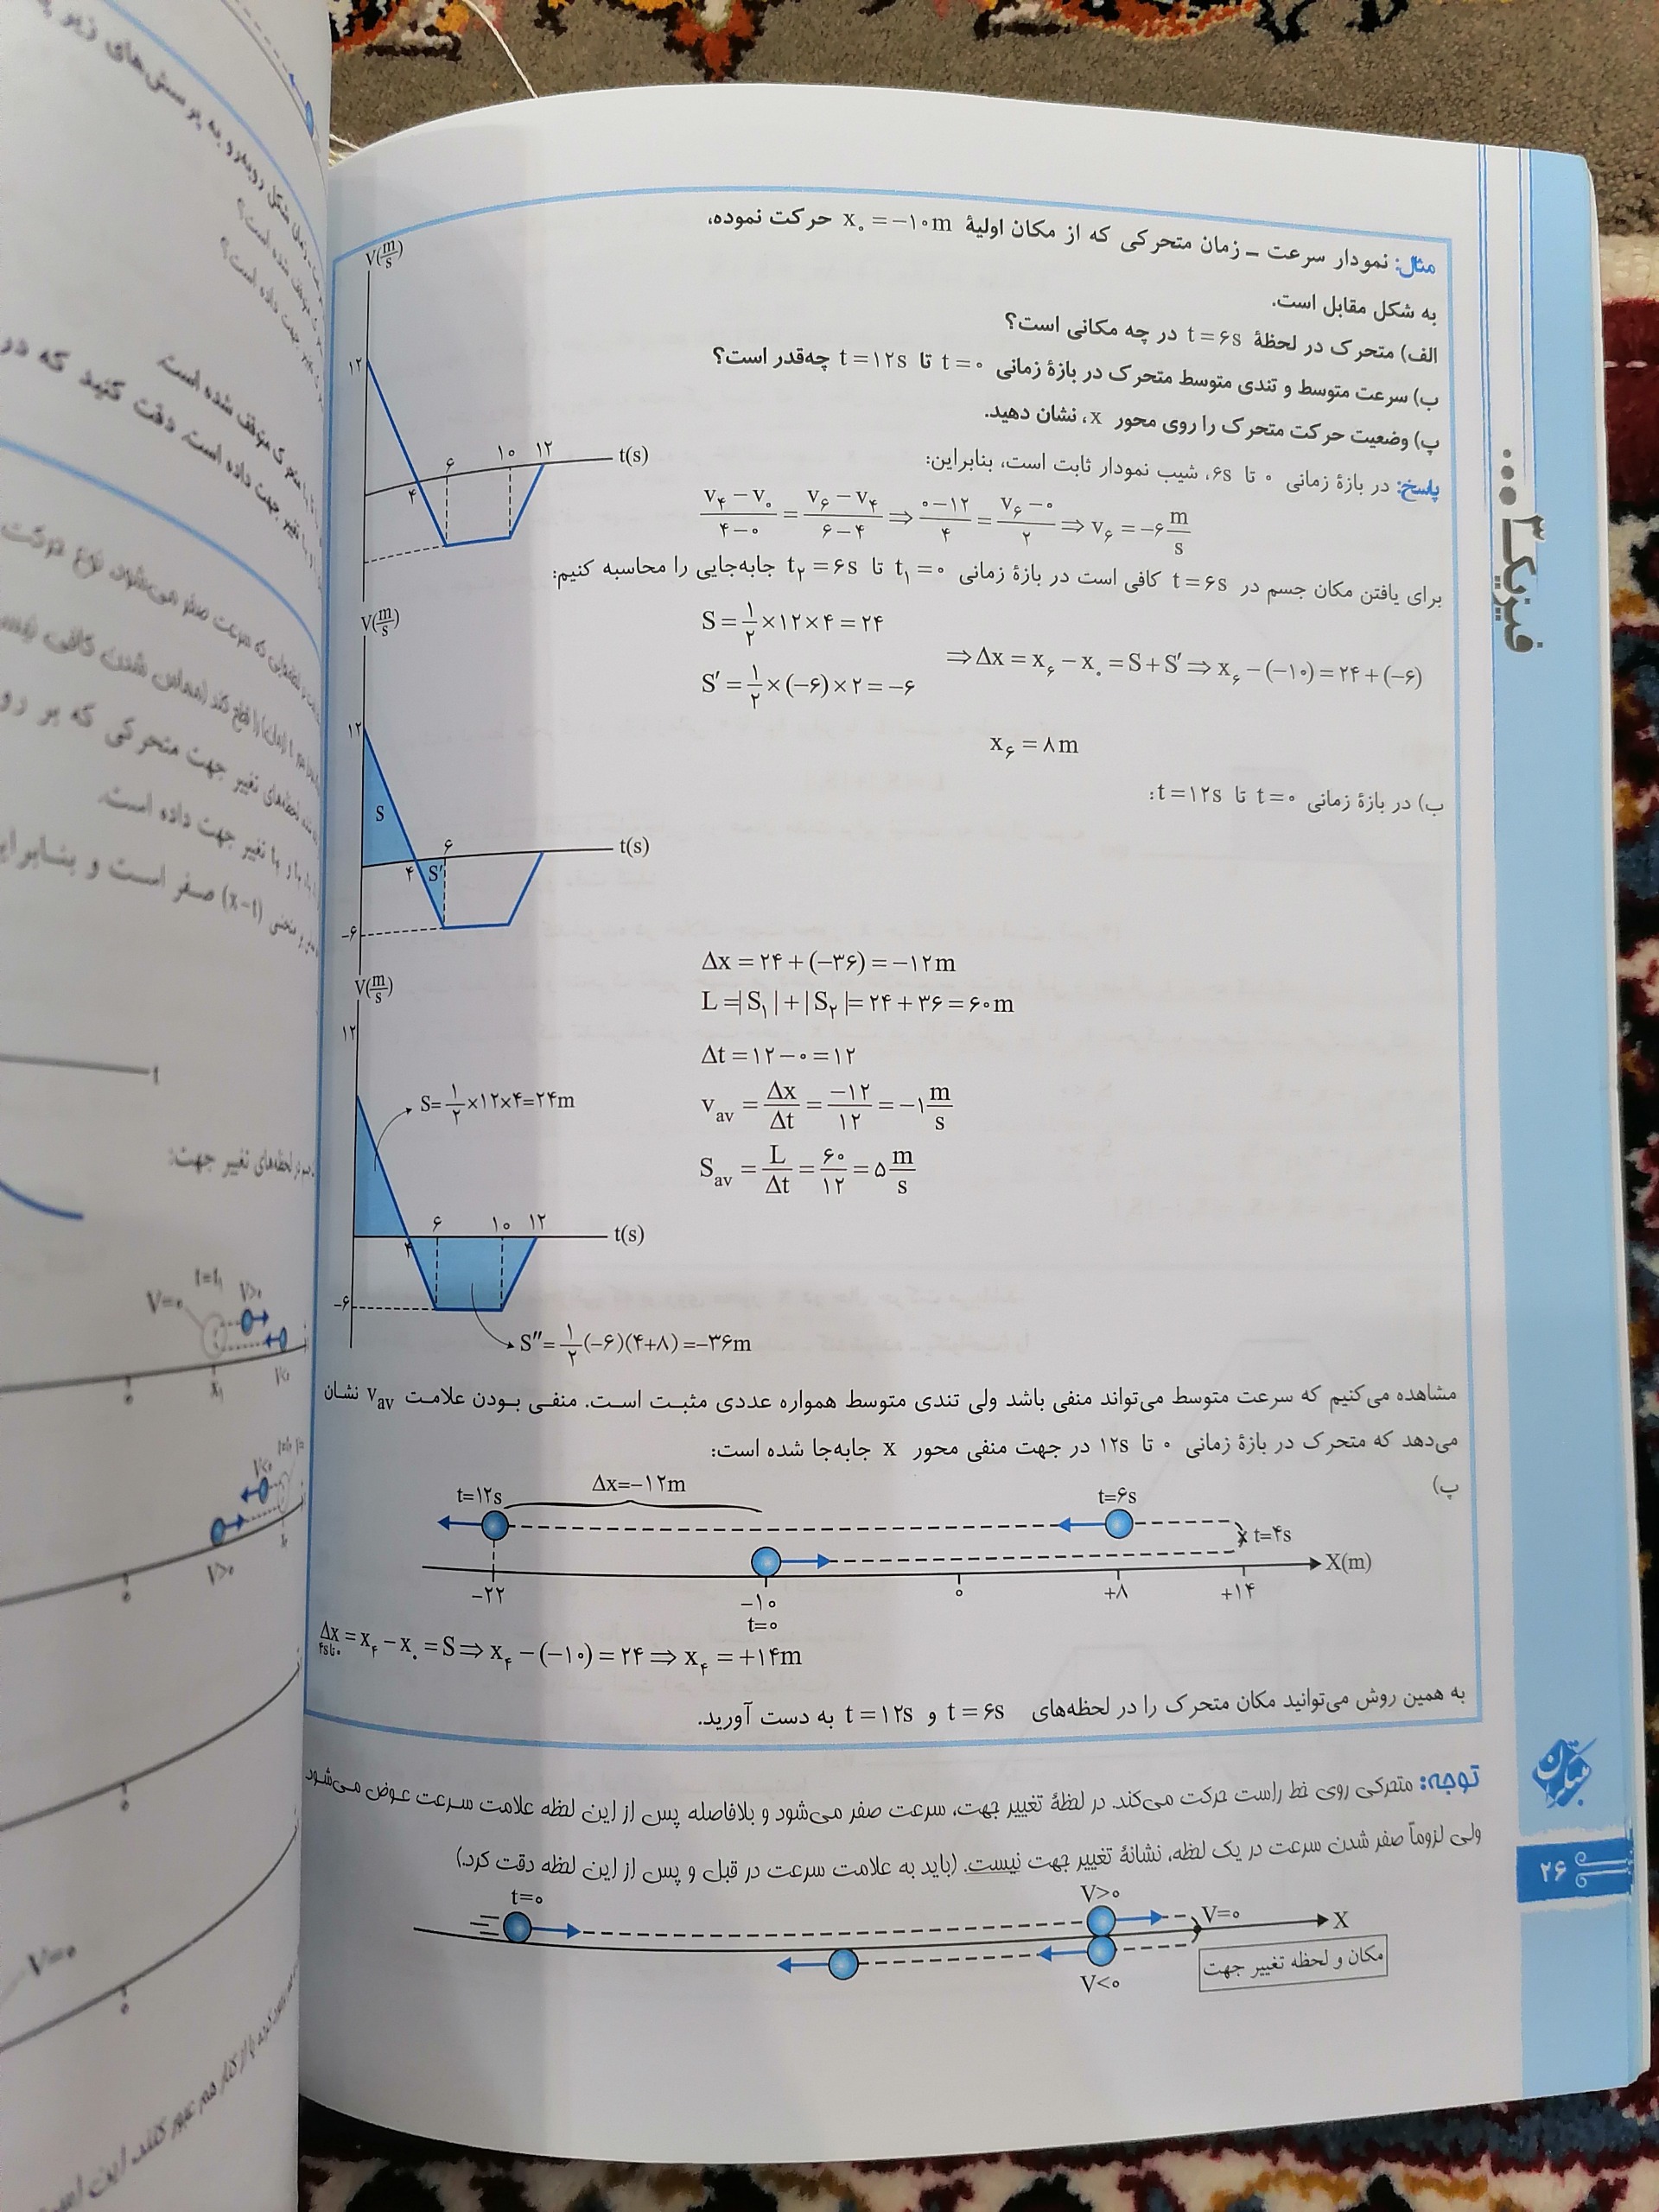 مثال: نمودار سرعت ـ زمان متحرکی که از مکان اولیهٔ x₀ = −۱۰m حرکت نموده،
به شکل مقابل است.
الف) متحرک در لحظهٔ t = ۶s در چه مکانی است؟
ب) سرعت متوسط و تندی متوسط متحرک در بازهٔ زمانی t = ۰ تا t = ۱۲s چه‌قدر است؟
پ) وضعیت حرکت متحرک را روی محور x، نشان دهید.
پاسخ: در بازهٔ زمانی ۰ تا ۶s، شیب نمودار ثابت است، بنابراین:
(v₄ − v₀)/(۴ − ۰) = (v₆ − v₄)/(۶ − ۴) ⇒ (۰ − ۱۲)/۴ = (v₆ − ۰)/۲ ⇒ v₆ = −۶ m/s
برای یافتن مکان جسم در t = ۶s کافی است در بازهٔ زمانی t₁ = ۰ تا t₂ = ۶s جابه‌جایی را محاسبه کنیم:
S = ۱/۲ × ۱۲ × ۴ = ۲۴
S′ = ۱/۲ × (−۶) × ۲ = −۶
⇒ Δx = x₆ − x₀ = S + S′ ⇒ x₆ − (−۱۰) = ۲۴ + (−۶)
x₆ = ۸m
V(m/s)
۱۲
۴
۶
۱۰
۱۲
t(s)
V(m/s)
۱۲
S
S′
۴
۶
t(s)
−۶
ب) در بازهٔ زمانی t = ۰ تا t = ۱۲s:
Δx = ۲۴ + (−۳۶) = −۱۲m
L = |S₁| + |S₂| = ۲۴ + ۳۶ = ۶۰m
Δt = ۱۲ − ۰ = ۱۲
v_av = Δx/Δt = −۱۲/۱۲ = −۱ m/s
S_av = L/Δt = ۶۰/۱۲ = ۵ m/s
V(m/s)
۱۲
S = ۱/۲ × ۱۲ × ۴ = ۲۴m
۴
۶
۱۰
۱۲
t(s)
−۶
S″ = ۱/۲ (−۶)(۴+۸) = −۳۶m
مشاهده می‌کنیم که سرعت متوسط می‌تواند منفی باشد ولی تندی متوسط همواره عددی مثبت است. منفی بودن علامت v_av نشان
می‌دهد که متحرک در بازهٔ زمانی ۰ تا ۱۲s در جهت منفی محور x جابه‌جا شده است:
پ)
t=۱۲s
Δx=−۱۲m
t=۶s
t=۴s
X(m)
−۲۲
−۱۰
۰
+۸
+۱۴
t=۰
Δx = x₄ − x₀ = S ⇒ x₄ − (−۱۰) = ۲۴ ⇒ x₄ = +۱۴m
۰ تا ۴s
به همین روش می‌توانید مکان متحرک را در لحظه‌های t = ۶s و t = ۱۲s به دست آورید.
توجه: متحرکی روی خط راست حرکت می‌کند. در لحظهٔ تغییر جهت، سرعت صفر می‌شود و بلافاصله پس از این لحظه علامت سرعت عوض می‌شود
ولی لزوماً صفر شدن سرعت در یک لحظه، نشانهٔ تغییر جهت نیست. (باید به علامت سرعت در قبل و پس از این لحظه دقت کرد.)
t=۰
V>۰
V=۰
X
V<۰
مکان و لحظه تغییر جهت
فیزیک ۳
مبتکران
۲۶
متحرک متوقف شده است.
جهت داده است. دقت کنید که در
و یا تغییر جهت داده است.
(x-t) صفر است و بنابراین
t
در لحظه‌های تغییر جهت:
t=t₁
V=۰
V>۰
V<۰
x₁
۰
V<۰
V>۰
۰
V=۰